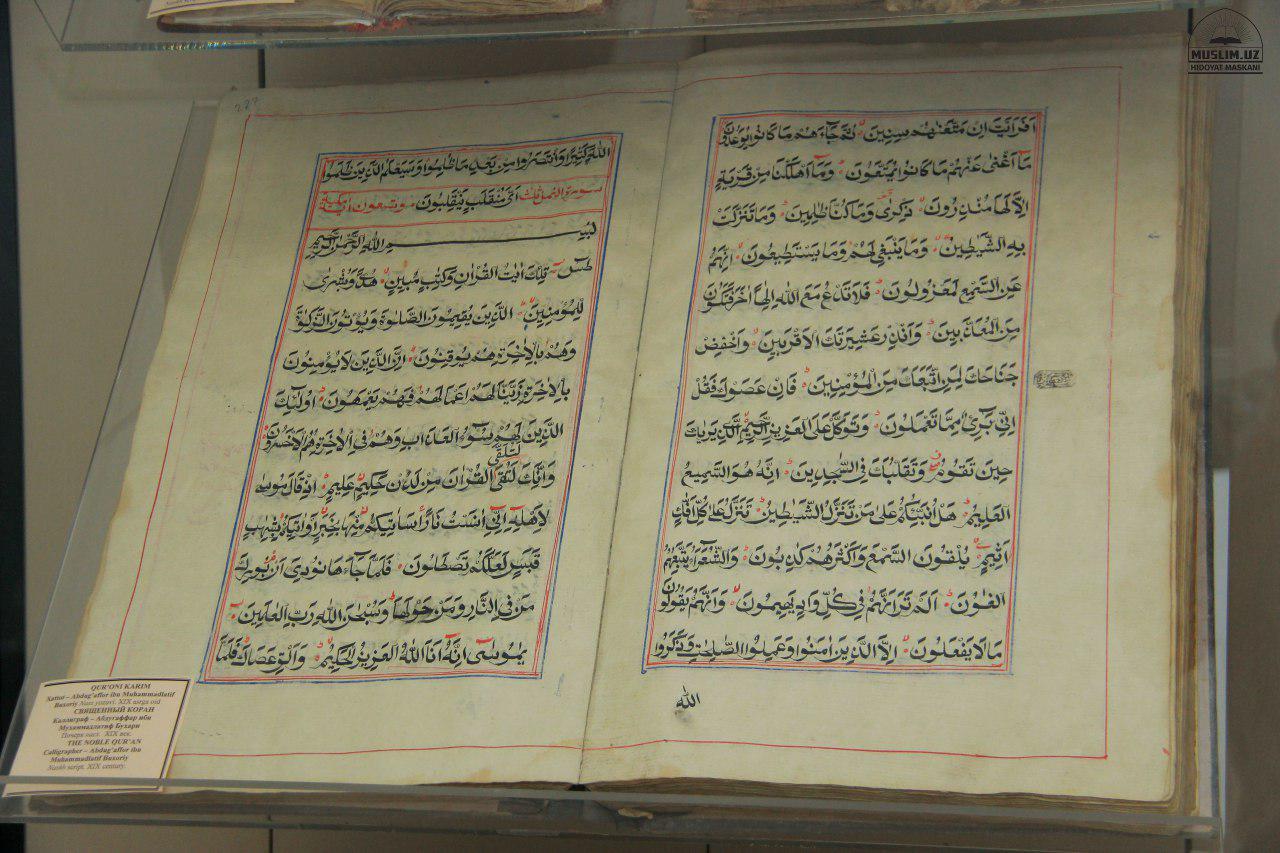 افرايت ان متعنهم سنين ثم جاءهم ما كانوا يوعدون
ما اغنى عنهم ما كانوا يمتعون وما اهلكنا من قرية
الا لها منذرون ذكرى وما كنا ظلمين وما تنزلت
به الشيطين وما ينبغي لهم وما يستطيعون انهم
عن السمع لمعزولون فلا تدع مع الله الها اخر فتكون
من المعذبين وانذر عشيرتك الاقربين واخفض
جناحك لمن اتبعك من المؤمنين فان عصوك فقل
اني بريء مما تعملون وتوكل على العزيز الرحيم الذي يريك
حين تقوم وتقلبك في السجدين انه هو السميع
العليم هل انبئكم على من تنزل الشيطين تنزل على كل افاك
اثيم يلقون السمع واكثرهم كذبون والشعراء يتبعهم
الغاون الم تر انهم في كل واد يهيمون وانهم يقولون
ما لا يفعلون الا الذين امنوا وعملوا الصلحت وذكروا
الله
الله كثيرا وانتصروا من بعد ما ظلموا وسيعلم الذين ظلموا
سورة النمل اي منقلب ينقلبون وتسعون اية مكية
بسم الله الرحمن الرحيم
طس تلك ايت القران وكتب مبين هدى وبشرى
للمؤمنين الذين يقيمون الصلوة ويؤتون الزكوة
وهم بالاخرة هم يوقنون ان الذين لا يؤمنون
بالاخرة زينا لهم اعمالهم فهم يعمهون اولئك
الذين لهم سوء العذاب وهم في الاخرة هم الاخسرون
وانك لتلقى القران من لدن حكيم عليم اذ قال موسى
لاهله اني انست نارا ساتيكم منها بخبر او اتيكم بشهب
قبس لعلكم تصطلون فلما جاءها نودي ان بورك
من في النار ومن حولها وسبحن الله رب العلمين
يموسى انه انا الله العزيز الحكيم والق عصاك فلما
QUR'ONI KARIM
Xattot – Abdug'affor ibn Muhammadlatif
Buxoriy Nasx yozuvi. XIX asrga oid
СВЯЩЕННЫЙ КОРАН
Каллиграф – Абдугаффар ибн
Мухаммадлатиф Бухари
Почерк насх. XIX век.
THE NOBLE QUR'AN
Calligrapher – Abdug'affor ibn
Muhammadlatif Buxoriy
Naskh script. XIX century.
MUSLIM.UZ
HIDOYAT MASKANI